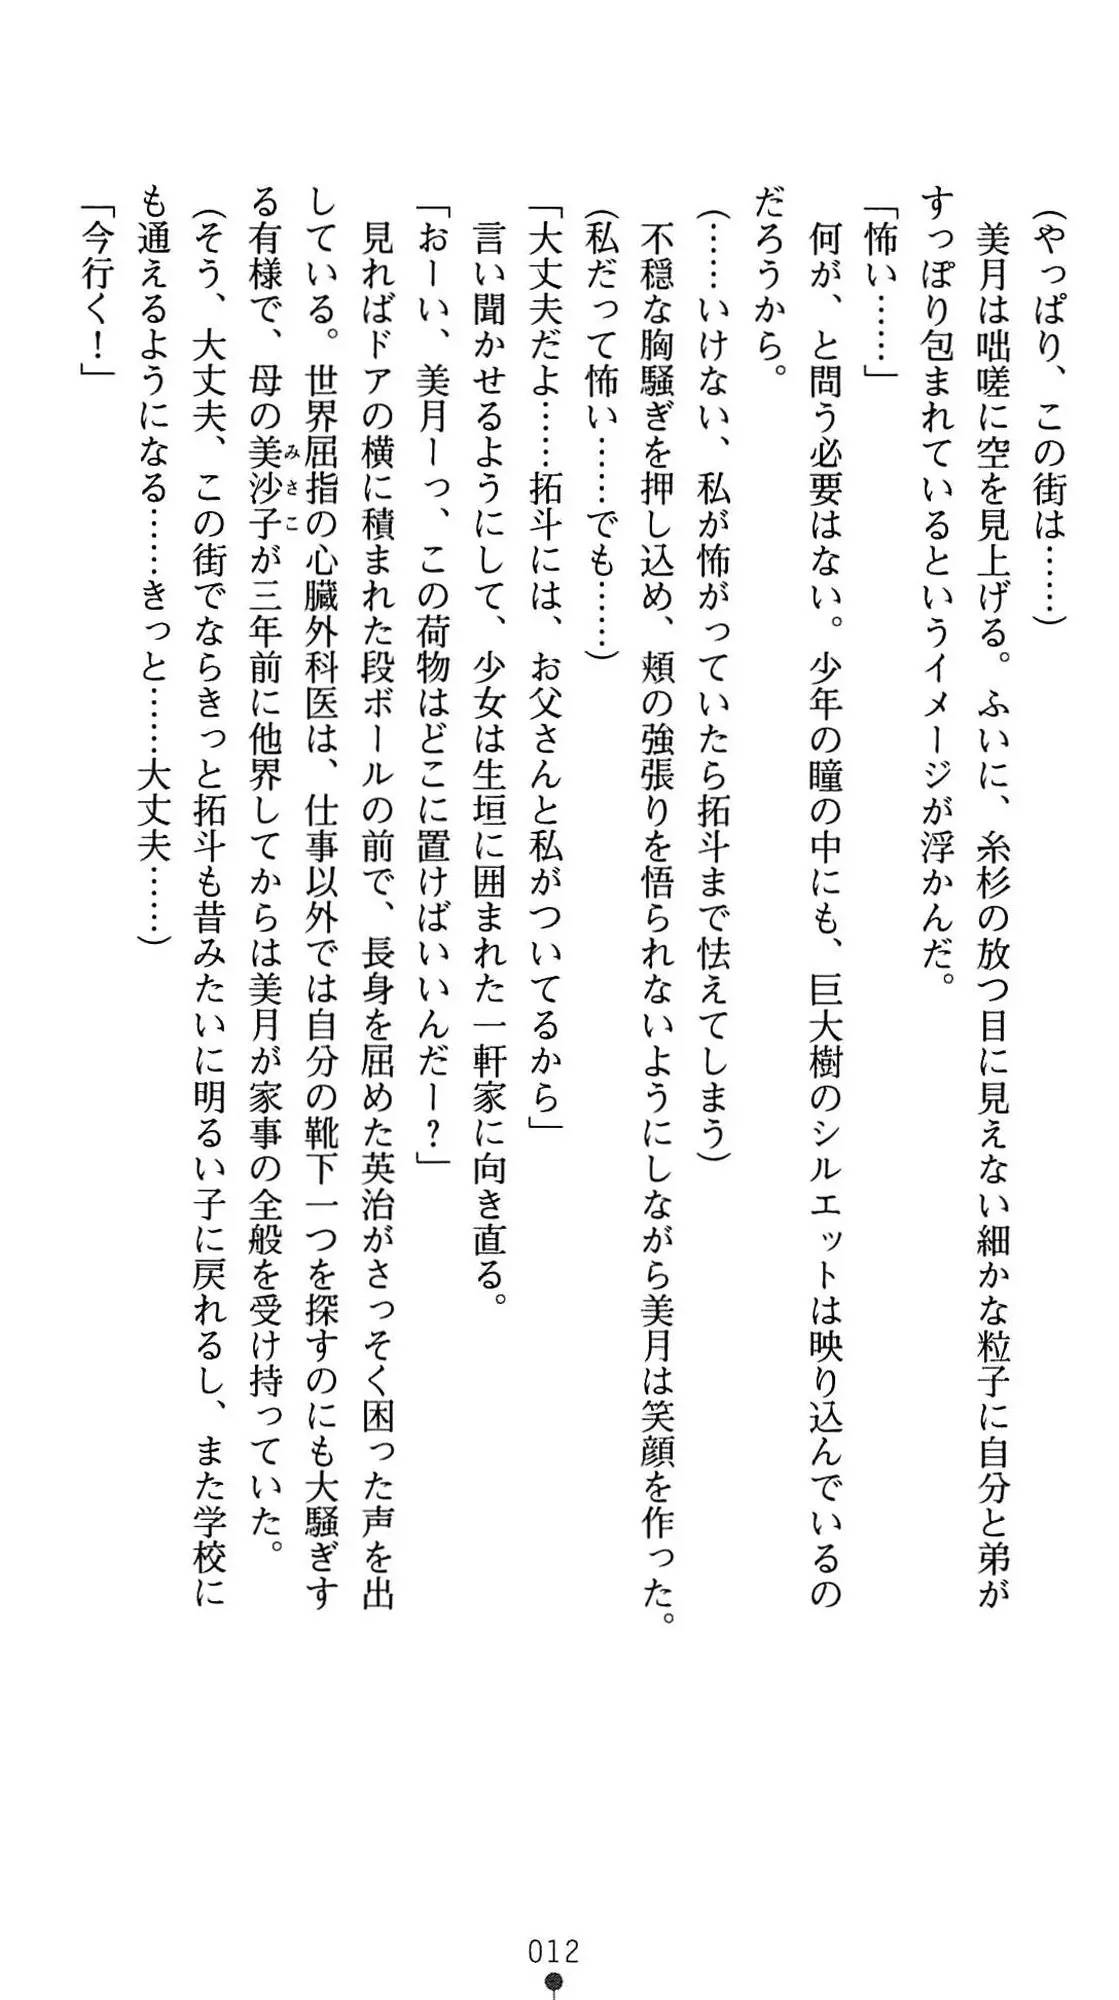 (やっぱり、この街は……)
　美月は咄嗟に空を見上げる。ふいに、糸杉の放つ目に見えない細かな粒子に自分と弟が
すっぽり包まれているというイメージが浮かんだ。
「怖い……」
　何が、と問う必要はない。少年の瞳の中にも、巨大樹のシルエットは映り込んでいるの
だろうから。
(……いけない、私が怖がっていたら拓斗まで怯えてしまう)
　不穏な胸騒ぎを押し込め、頬の強張りを悟られないようにしながら美月は笑顔を作った。
(私だって怖い……でも……)
「大丈夫だよ……拓斗には、お父さんと私がついてるから」
　言い聞かせるようにして、少女は生垣に囲まれた一軒家に向き直る。
「おーい、美月ーっ、この荷物はどこに置けばいいんだー？」
　見ればドアの横に積まれた段ボールの前で、長身を屈めた英治がさっそく困った声を出
している。世界屈指の心臓外科医は、仕事以外では自分の靴下一つを探すのにも大騒ぎす
る有様で、母の美沙子みさこが三年前に他界してからは美月が家事の全般を受け持っていた。
(そう、大丈夫、この街でならきっと拓斗も昔みたいに明るい子に戻れるし、また学校に
も通えるようになる……きっと……大丈夫……)
「今行く！」
012